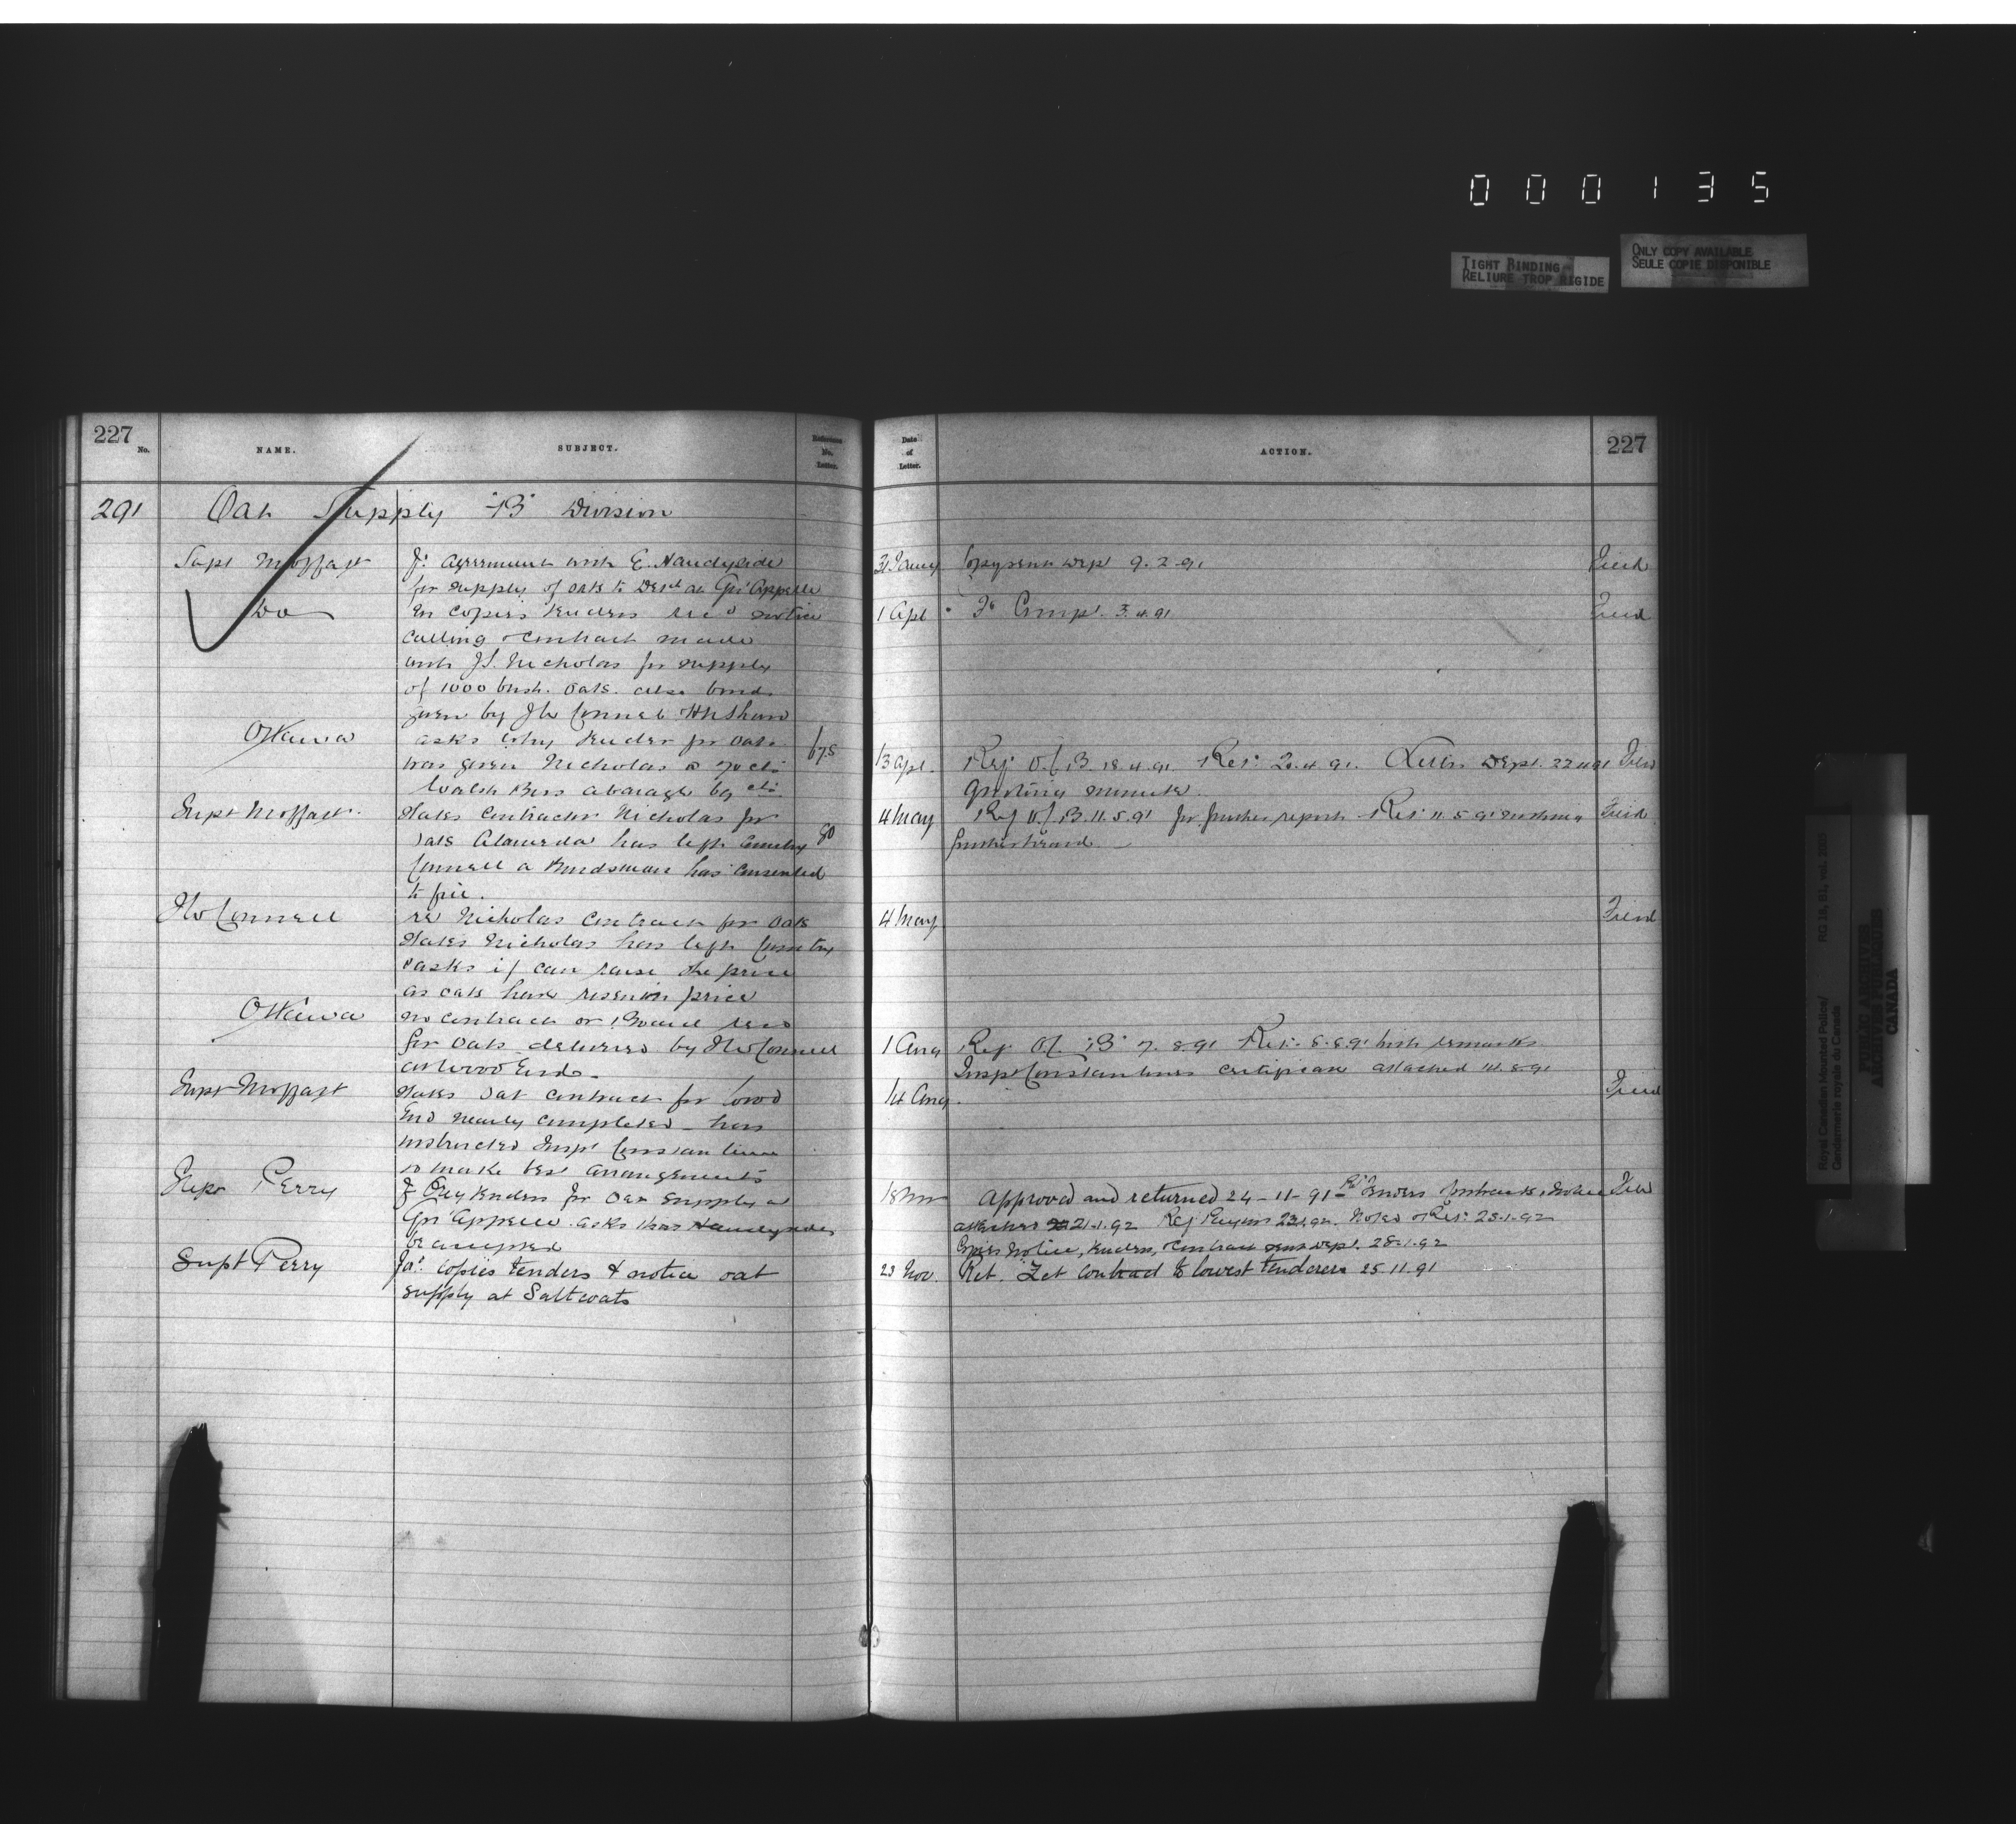 000135
TIGHT BINDING
RELIURE TROP RIGIDE
ONLY COPY AVAILABLE
SEULE COPIE DISPONIBLE
227
No.
NAME.
SUBJECT.
Reference
No.
Letter.
Date
of
Letter.
ACTION.
227
291 Oat Supply "B" Division
Supt Moffatt
agreement with E. Handyside
for supply of oats to at Qu'Appelle
31 Jany
9.2.91
Filed
Do
copies tenders notice
calling contract made
with J.S. Nicholas for supply
of 1000 bush. oats. also bond
given by JW Connell
1 Apl
Compt. 3.4.91
Filed
Ottawa
asks why tender for oats
was given Nicholas @ 70 cts
Walsh Bros
675
13 Apl.
Ref O.C. B. 18.4.91. Ret: 20.4.91. Dept. 22.4.91
quoting minute.
Filed
Supt Moffatt
States Contractor Nicholas for
oats Alameda has left Country
Connell a Bondsman has consented
to
80
4 May
Ref O.C. B. 11.5.91 for further report
Filed
JW Connell
re Nicholas contract for oats
States Nicholas has left Country
asks if can raise the price
as oats have risen in price
4 May
Filed
Ottawa
no contract or
for oats delivered by JW Connell
at Wood End.
1 Aug
Ref O.C. "B" 7.8.91 Ret. 8.8.91 with remarks.
Insp Constantine's attached
Supt Moffatt
States oat contract for Wood
End nearly completed - has
instructed Insp Constantine
to make best arrangements
14 Aug.
Filed
Supt Perry
tenders for oat supply at
Qu'Appelle. asks that Handysides
be accepted
18 Nov
Approved and returned 24-11-91
21-1-92
Copies Notice, tenders, contract sent Dept. 28-1-92
Supt Perry
copies tenders & notice oat
supply at Saltcoats
23 Nov.
Ret. Let contract to lowest tenderer 25.11.91
Royal Canadian Mounted Police/
Gendarmerie royale du Canada
RG 18, B1, vol.
PUBLIC ARCHIVES
ARCHIVES PUBLIQUES
CANADA